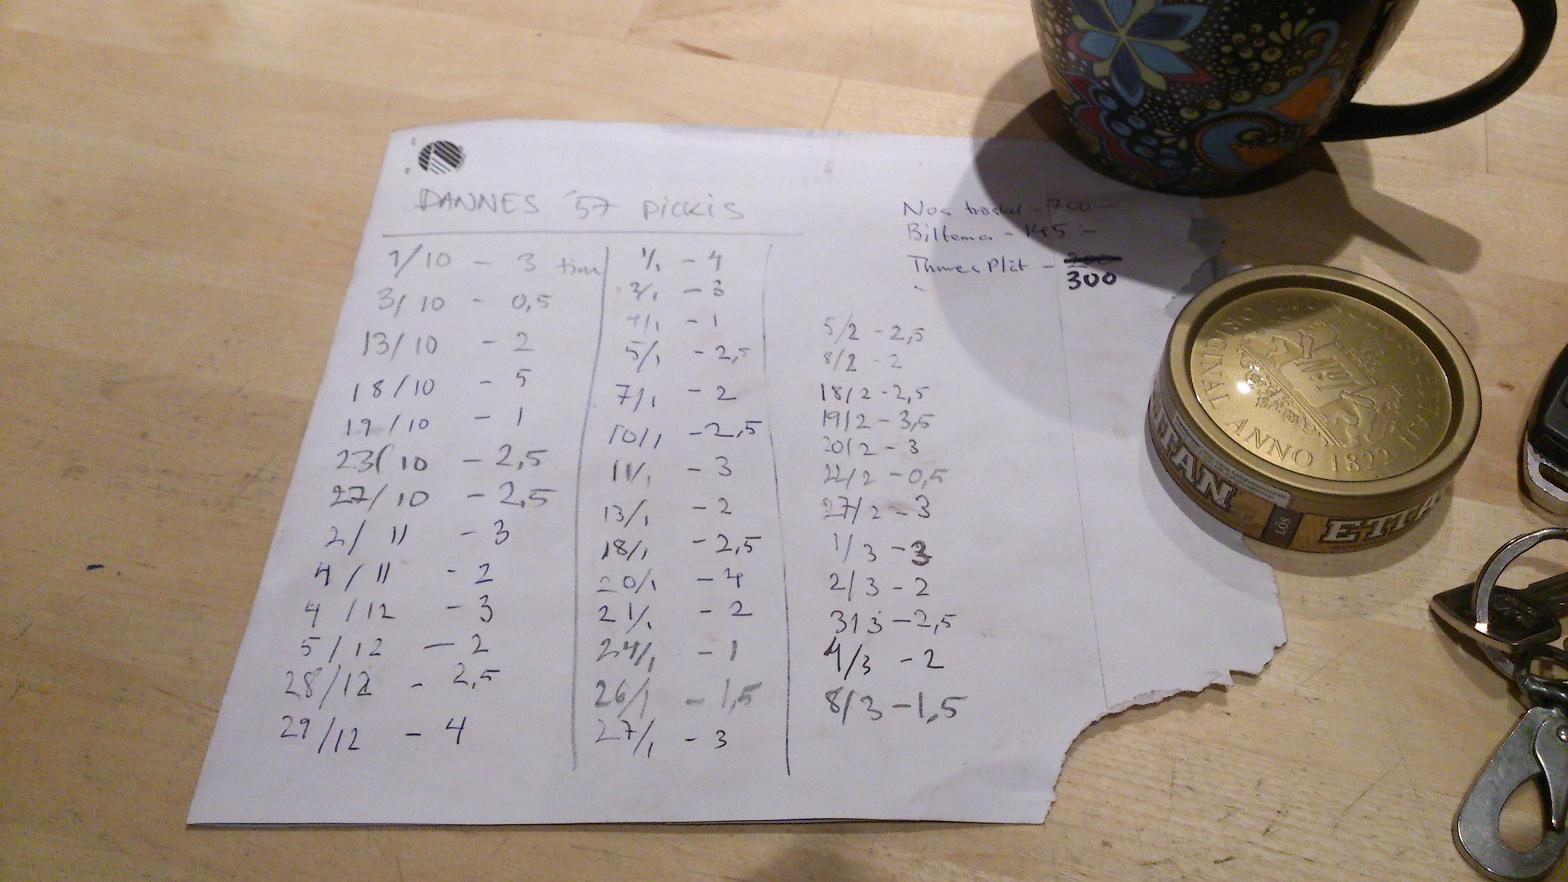 DANNES '57 PICKIS
1/10 - 3 tim
3/10 - 0,5
13/10 - 2
18/10 - 5
19/10 - 1
23/10 - 2,5
27/10 - 2,5
2/11 - 3
4/11 - 2
4/12 - 3
5/12 - 2
28/12 - 2,5
29/12 - 4
1/1 - 4
2/1 - 3
4/1 - 1
5/1 - 2,5
7/1 - 2
10/1 - 2,5
11/1 - 3
13/1 - 2
18/1 - 2,5
20/1 - 4
21/1 - 2
24/1 - 1
26/1 - 1,5
27/1 - 3
700:-
Biltema - 145:-
Plåt - 300
5/2 - 2,5
8/2 - 2
18/2 - 2,5
19/2 - 3,5
20/2 - 3
22/2 - 0,5
27/2 - 3
1/3 - 3
2/3 - 2
3/3 - 2,5
4/3 - 2
8/3 - 1,5
ANNO 1822
ETTAN